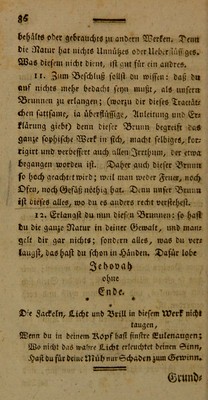 86
behältes oder gebrauches zu andern Werken. Denn
die Natur hat nichts Unnützes oder Ueberflüssiges.
Was diesem nicht dient, ist gut für ein andres.
11. Zum Beschluß sollst du wissen: daß du
auf nichts mehr bedacht seyn mußt, als unsern
Brunnen zu erlangen; (worzu dir dieses Tractät-
chen sattsame, ia überflüssige, Anleitung und Er-
klärung giebt) denn dieser Brunn begreift das
ganze sophische Werk in sich, macht selbiges, kor-
rigirt und verbessert auch allen Jrrthum, der etwa
begangen worden ist. Daher auch dieser Brunn
so hoch geachtet wird; weil man weder Feuer, noch
Ofen, noch Gefäß nöthig hat. Denn unser Brunn
ist dieses alles, wo du es anders recht verstehest.
12. Erlangst du nun diesen Brunnen: so hast
du die ganze Natur in deiner Gewalt, und man-
gelt dir gar nichts; sondern alles, was du ver-
langst, das hast du schon in Händen. Dafür lobe
Jehovah
ohne
Ende.
Die Fackeln, Licht und Brill in diesem Werk nicht
taugen,
Wenn du in deinem Kopf hast finstre Eulenaugen;
Wo nicht das wahre Licht erleuchtet deinen Sinn,
Hast du für deine Müh nur Schaden zum Gewinn.
Grund-